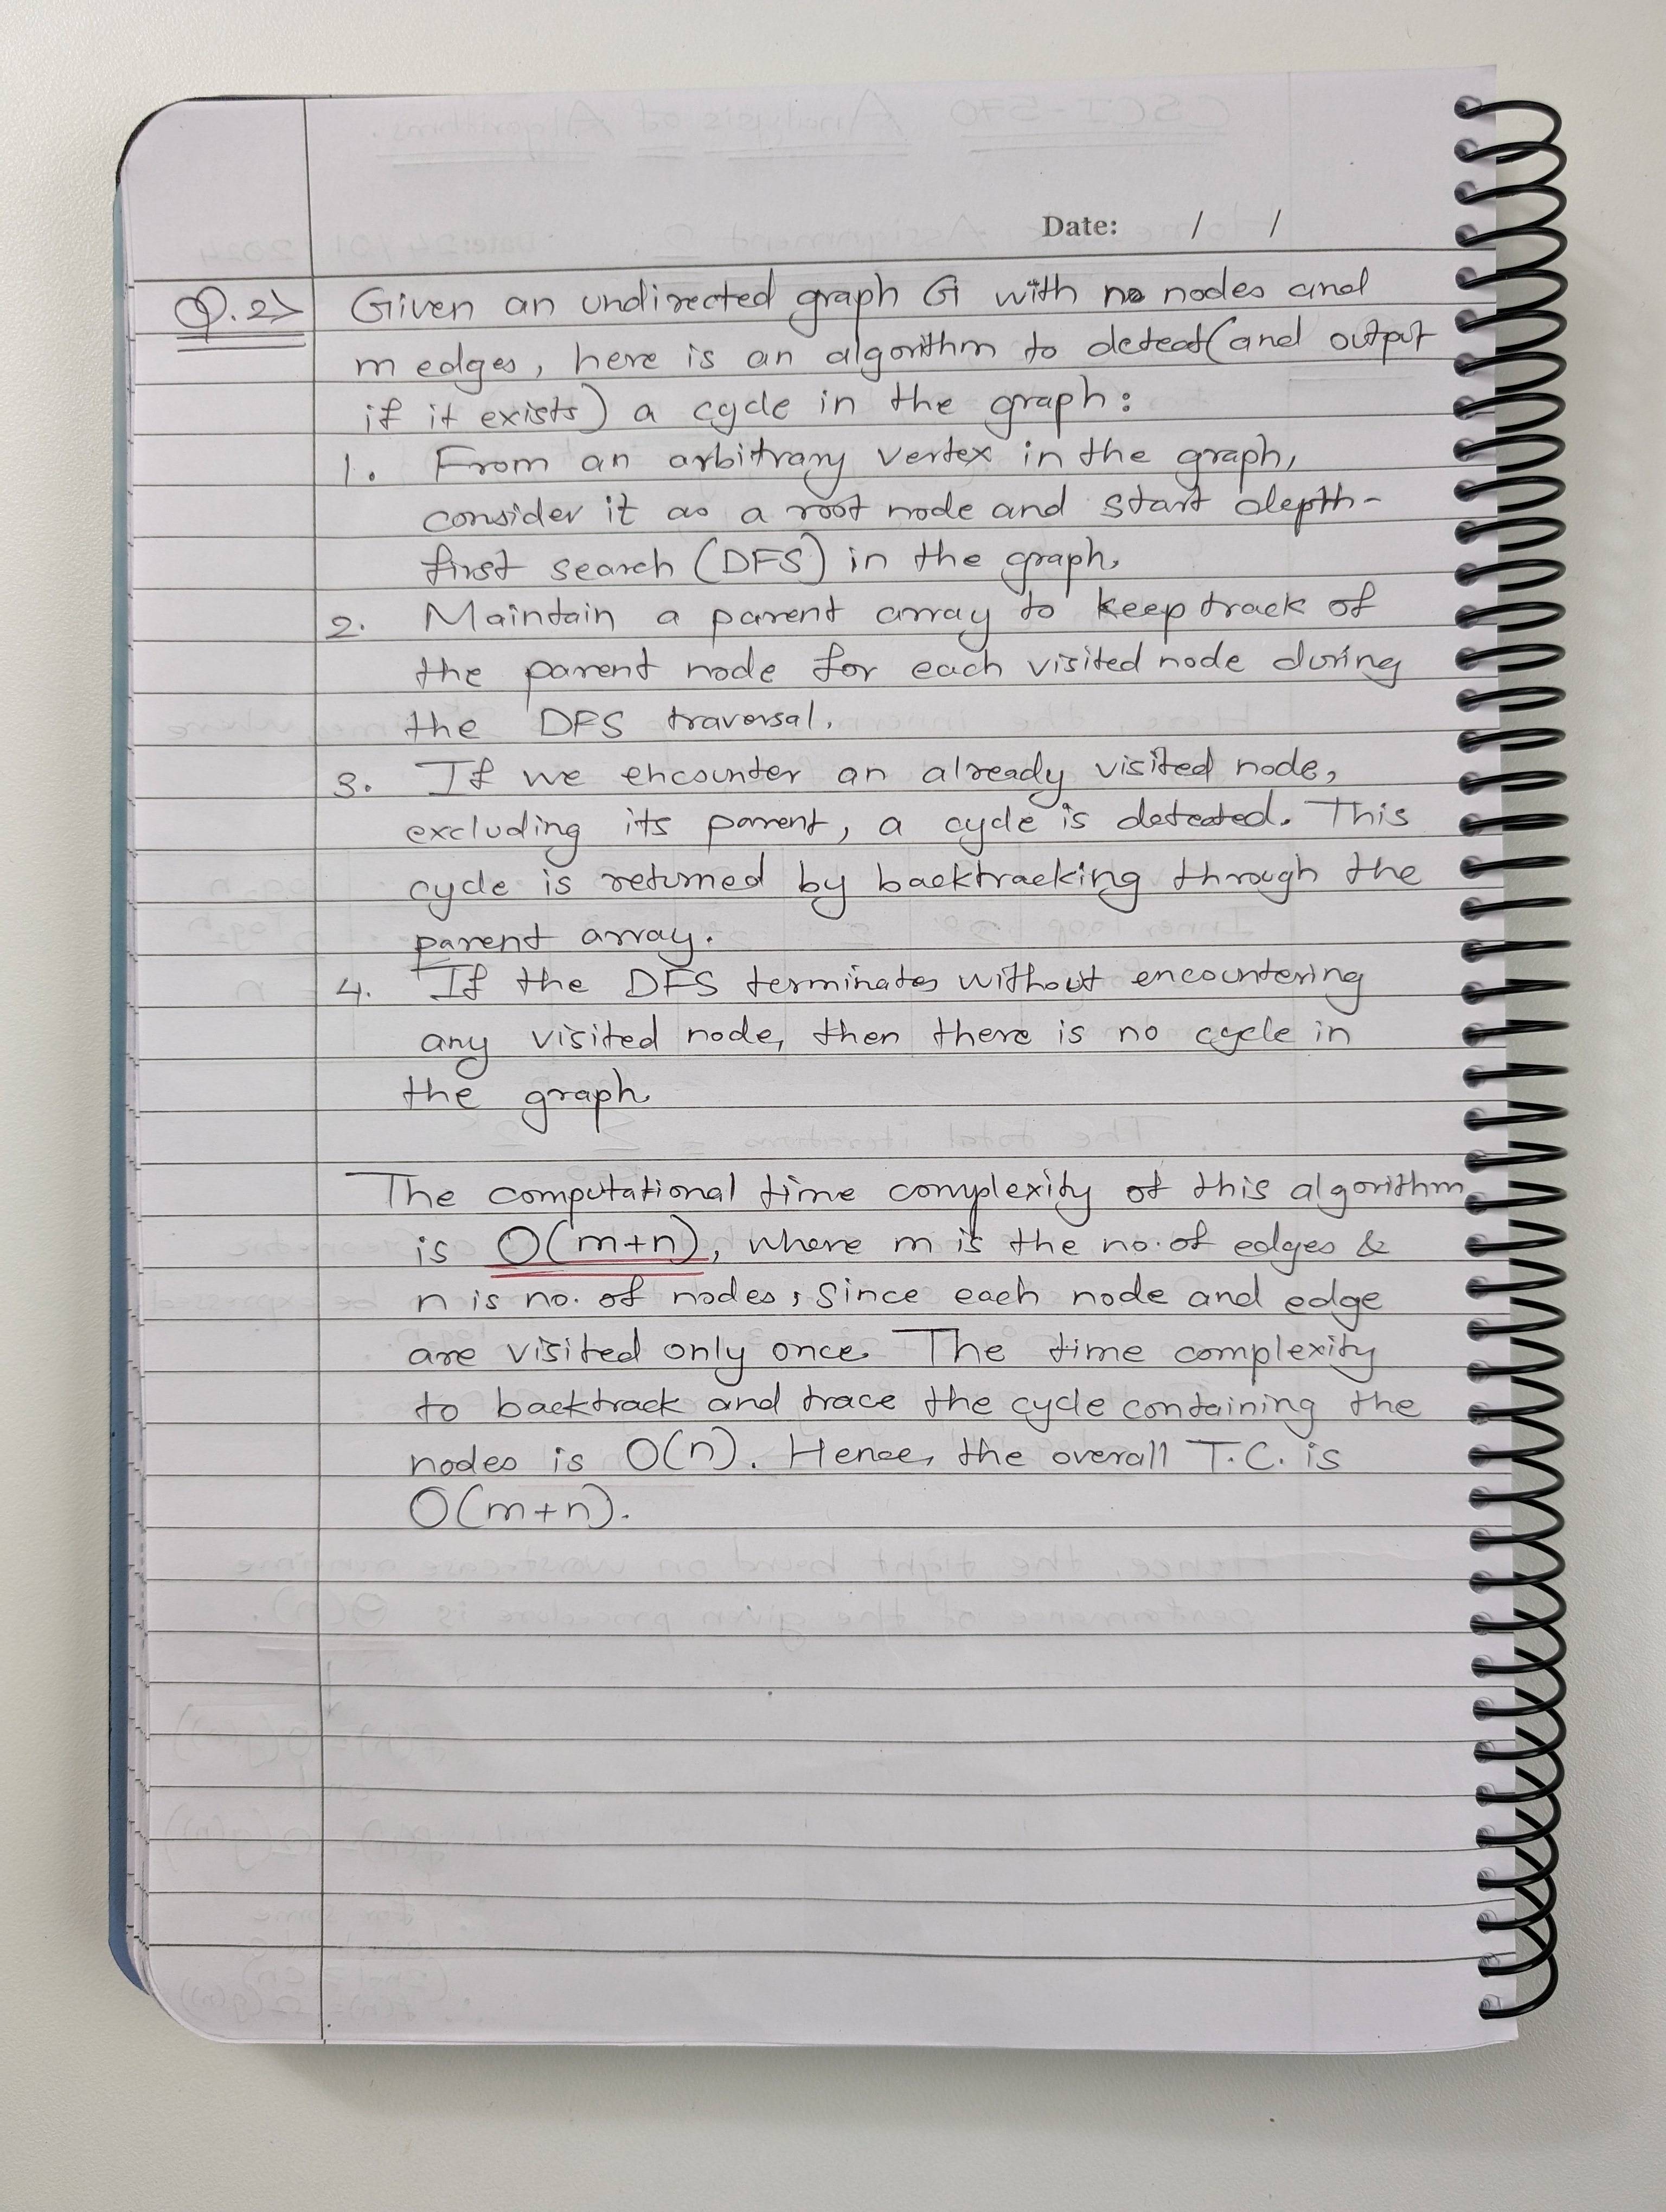 Date: / /
Q.2> Given an undirected graph G with n nodes and
m edges, here is an algorithm to detect (and output
if it exists) a cycle in the graph:
1. From an arbitrary vertex in the graph,
consider it as a root node and start depth-
first search (DFS) in the graph.
2. Maintain a parent array to keep track of
the parent node for each visited node during
the DFS traversal.
3. If we encounter an already visited node,
excluding its parent, a cycle is detected. This
cycle is returned by backtracking through the
parent array.
4. If the DFS terminates without encountering
any visited node, then there is no cycle in
the graph.
The computational time complexity of this algorithm
is O(m+n), where m is the no. of edges &
n is no. of nodes, since each node and edge
are visited only once. The time complexity
to backtrack and trace the cycle containing the
nodes is O(n). Hence, the overall T.C. is
O(m+n).